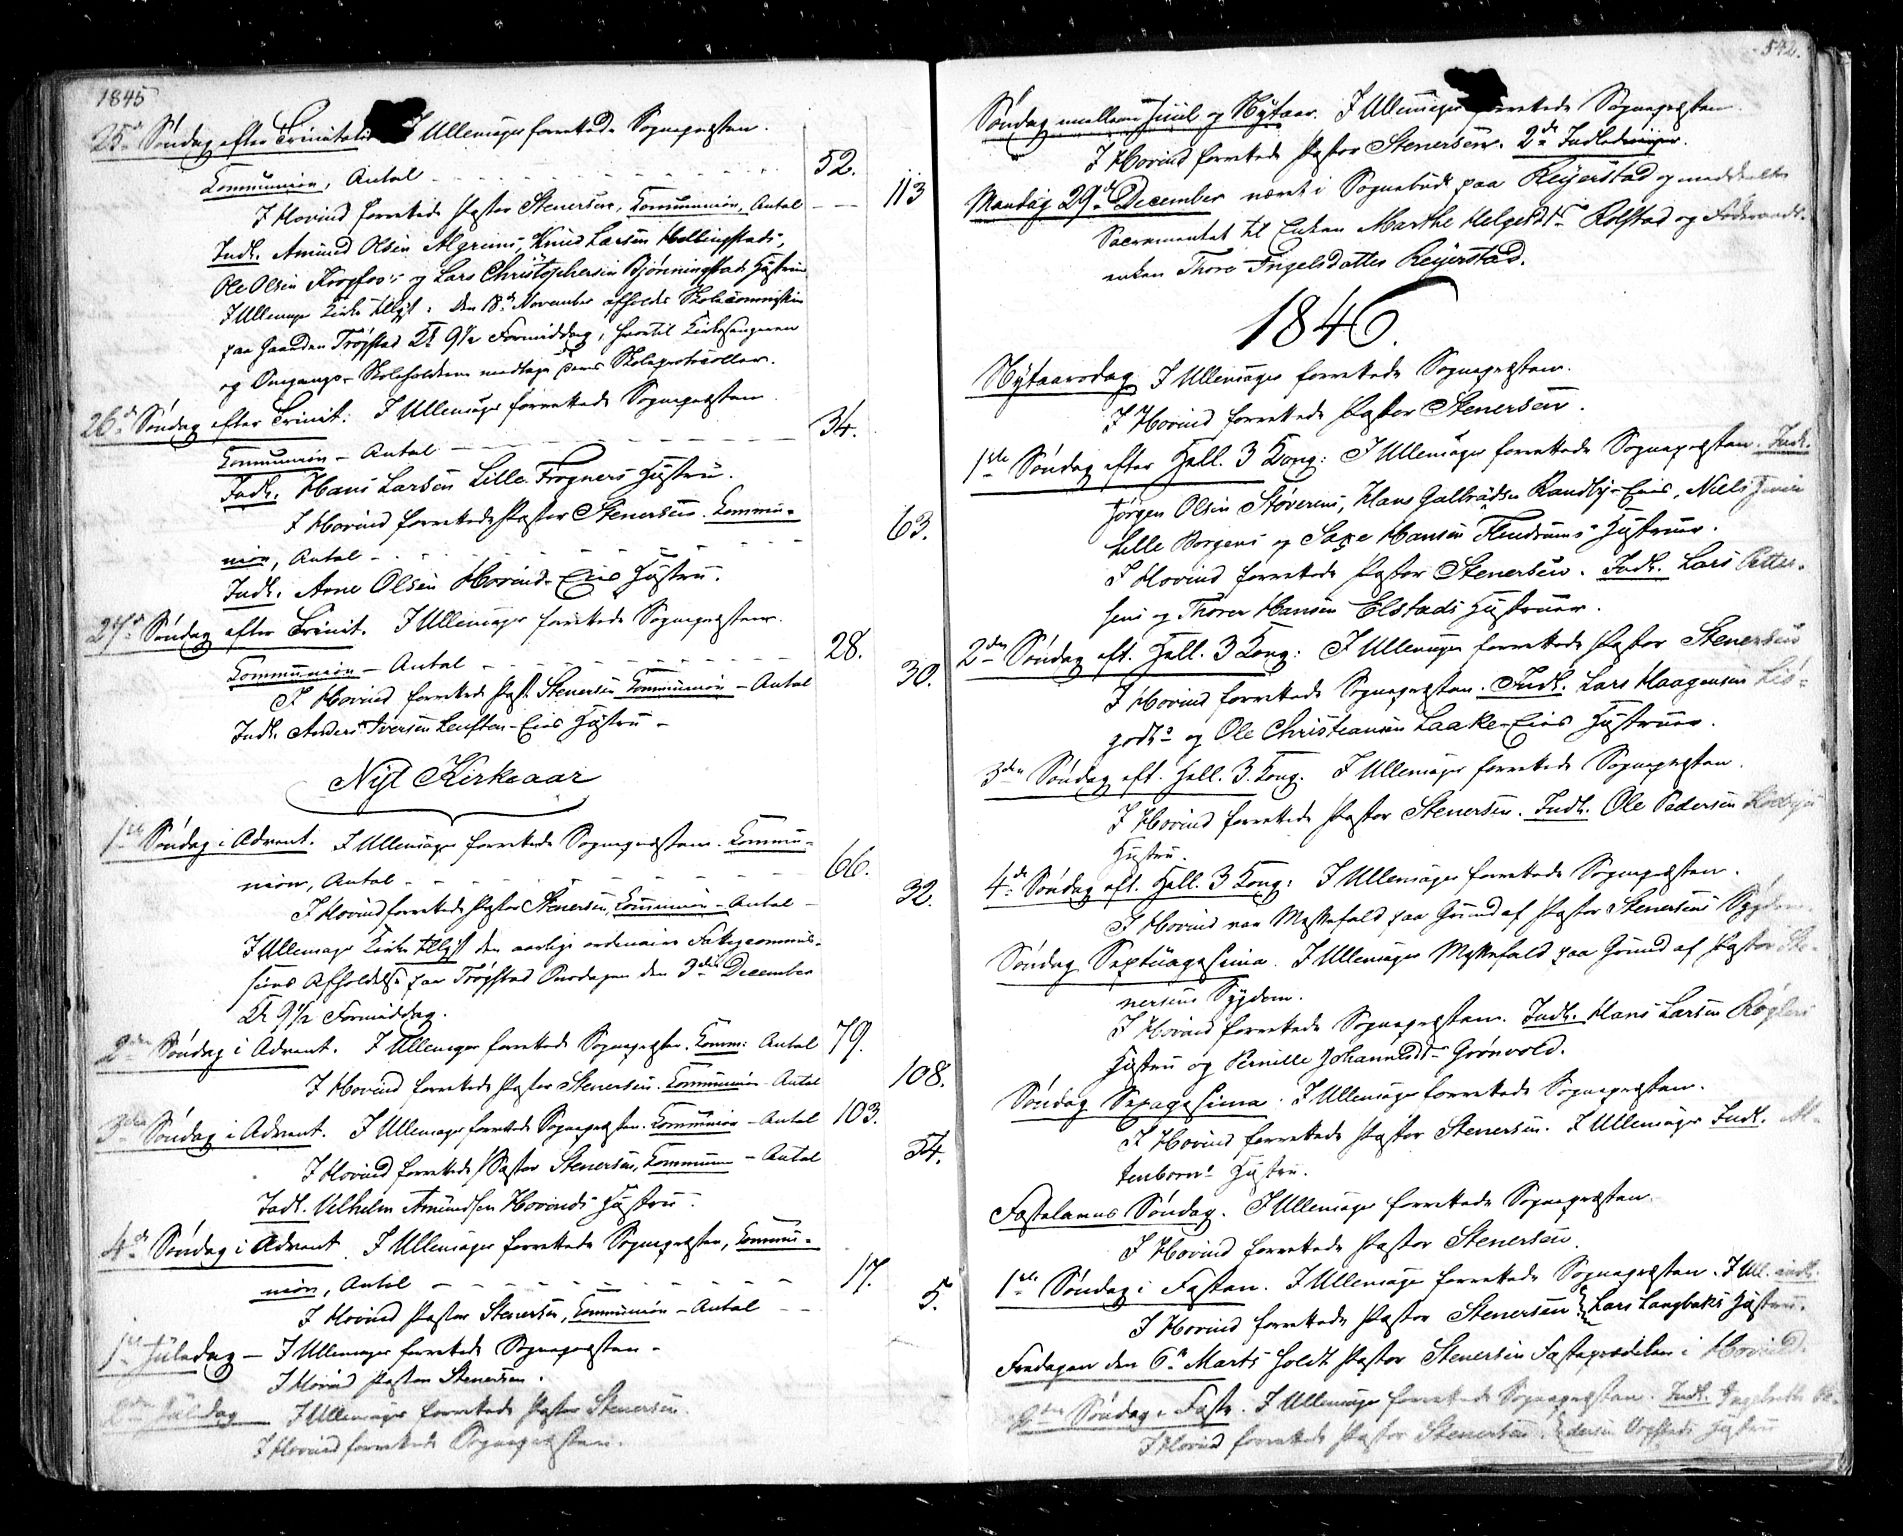 1845
25de Søndag efter Trinitatis I Ullensager forrettede Sognepræsten.
Communion, Antal 52.
I Hovind forrettede Pastor Stenersen, Communion, Antal 113
Indl. Amund Olsen Algrims, Knud Larsen Holbingstads,
Ole Olsen Krogfos's og Lars Christophersen Bjønningstads Hustruer
I Ullensager Kirke tillyst: Den 18de November afholdes Skolecommission
paa Gaarden Trøgstad Kl. 9 1/2 Formiddag, hvortil Kirkesangeren
og Omgangs-Skoleholderne medtage deres Skoleprotocoller.
26de Søndag efter Trinit. I Ullensager forrettede Sognepræsten
Communion - Antal 34.
Indl. Hans Larsen Lille Frogners Hustru.
I Hovind forrettede Pastor Stenersen. Commu-
nion, Antal 63.
Indl. Arne Olsen Hovinds Eies Hustru.
27de Søndag efter Trinit. I Ullensager forrettede Sognepræsten.
Communion - Antal 28.
I Hovind forrettede Past. Stenersen Communion - Antal 30.
Indl. Anders Iversen Eies Hustru -
Nyt Kirkeaar
1ste Søndag i Advent. I Ullensager forrettede Sognepræsten. Commu-
nion, Antal 66.
I Hovind forrettede Pastor Stenersen, Communion - Antal 32.
I Ullensager Kirke tillyst den aarlige ordinaire Fattigcommis-
sions Afholdelse paa Trøgstad Onsdagen den 3die December
Kl. 9 1/2 Formiddag.
2den Søndag i Advent. I Ullensager forrettede Sognepræsten. Comm: Antal 79.
I Hovind forrettede Pastor Stenersen. Communion - Antal 108.
3die Søndag i Advent. I Ullensager forrettede Sognepræsten. Communion - Antal 103.
I Hovind forrettede Pastor Stenersen, Communion - Antal 54.
Indl. Velhelm Amundsen Hovinds Hustru.
4de Søndag i Advent. I Ullensager forrettede Sognepræsten, Commu-
nion, Antal 17.
I Hovind Pastor Stenersen, Communion - Antal 5.
1ste Juledag - I Ullensager forrettede Sognepræsten -
I Hovind Pastor Stenersen.
2den Juledag I Ullensager forrettede Pastor Stenersen.
I Hovind forrettede Sognepræsten.
542.
Søndag mellem Juul og Nytaar. I Ullensager forrettede Sognepræsten.
I Hovind forrettede Pastor Stenersen. 2de Indledninger.
Mandag 29de December været i Sognebud paa Reijerstad og meddeelte
Sacramentet til Enken Marthe Helgesdtr Rolstad og Føderaads-
enken Thore Engelsdatter Reijerstad.
1846.
Nytaarsdag I Ullensager forrettede Sognepræsten.
I Hovind forrettede Pastor Stenersen.
1ste Søndag efter Hell. 3 Kong: I Ullensager forrettede Sognepræsten. Indl.
Jørgen Olsen Støverens, Hans Gulbrandsen Randby-Eies, Niels
Lille Borgens og Saxe Hansen Flendrums Hustruer.
I Hovind forrettede Pastor Stenersen. Indl. Lars Petter-
sens og Thorer Hansen Elstads Hustruer.
2den Søndag eft. Hell. 3 Kong: I Ullensager forrettede Pastor Stenersen
I Hovind forrettede Sognepræsten. Indl. Lars Haagensen Lis-
gods og Ole Christiansen Laake-Eies Hustruer.
3die Søndag eft. Hell. 3. Kong. I Ullensager forrettede Sognepræsten.
I Hovind forrettede Pastor Stenersen. Indl. Ole Pedersen
Hustru.
4de Søndag eft. Hell. 3 Kong: I Ullensager forrettede Sognepræsten.
I Hovind var Messefald paa Grund af Pastor Stenersens Sygdom.
Søndag Septuagesima. I Ullensager Messefald paa Grund af Pastor Ste-
nersens Sygdom.
I Hovind forrettede Sognepræsten. Indl. Hans Larsen Røglers
Hustru og Pernille Johannesdtr Grønvold.
Søndag Sexagesima. I Ullensager forrettede Sognepræsten.
I Hovind forrettede Pastor Stenersen. I Ullensager Indl. Al-
tenborns Hustru.
Fastelavns Søndag. I Ullensager forrettede Sognepræsten.
I Hovind forrettede Pastor Stenersen.
1ste Søndag i Fasten. I Ullensager forrettede Sognepræsten. I Ull. indl.
I Hovind forrettede Pastor Stenersen Lars Langbaks Hustru.
Fredagen den 6te Marts holdt Pastor Stenersen Fasteprædiken i Hovind.
2den Søndag i Faste. I Ullensager forrettede Sognepræsten. Indl. Ingebrette Pe-
I Hovind forrettede Pastor Stenersen. dersen Hustru